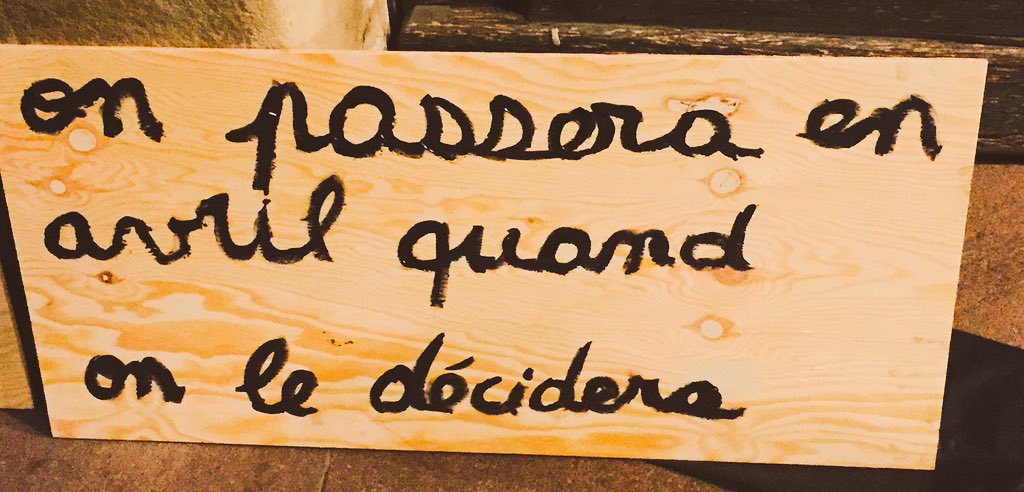 on passera en
avril quand
on le décidera